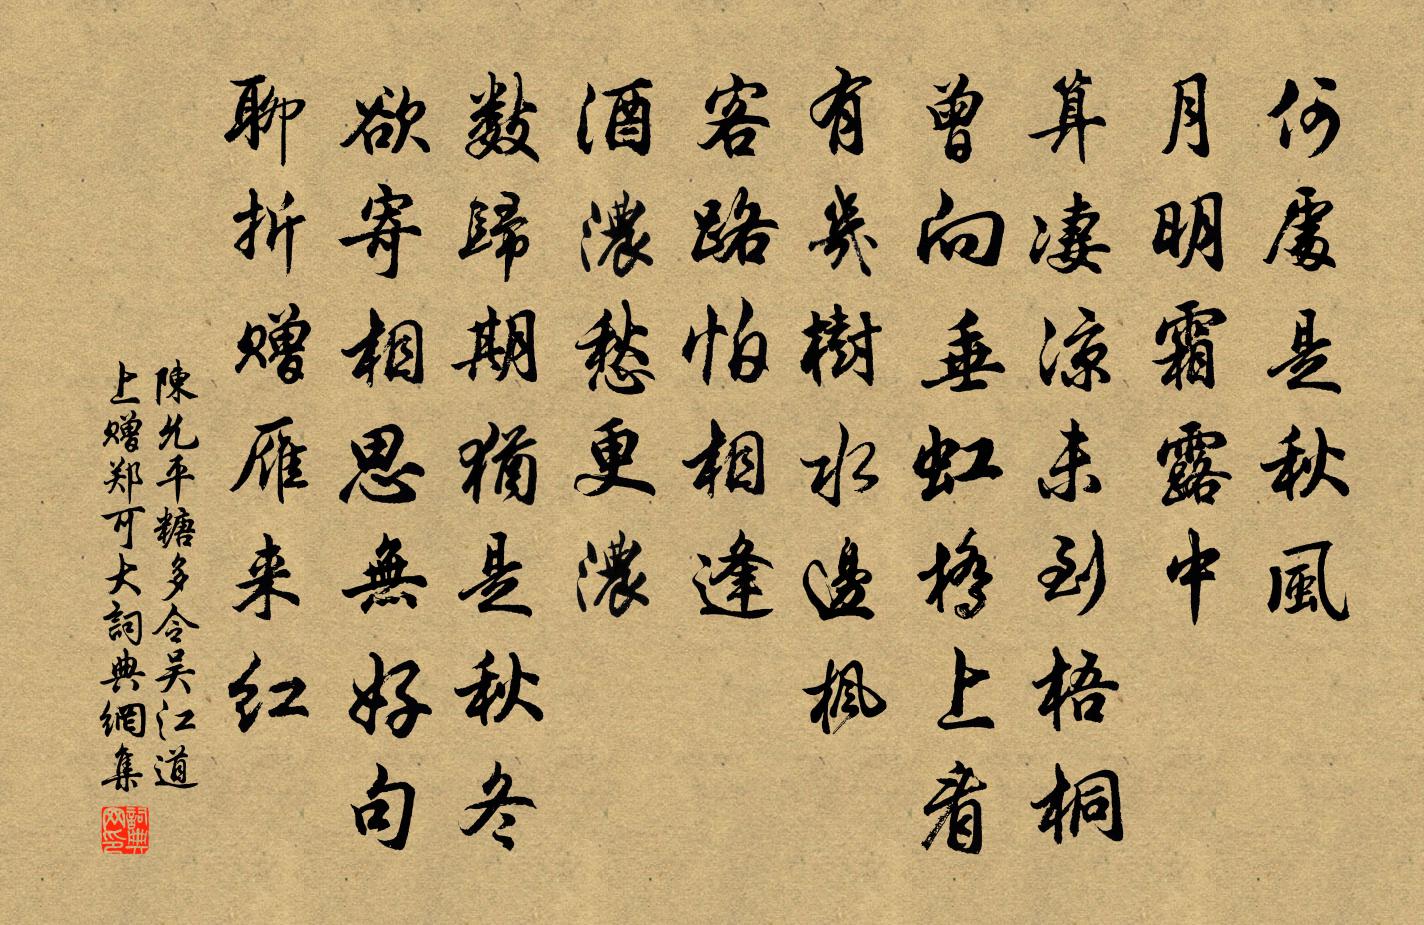 何處是秋風
月明霜露中
算凄凉未到梧桐
曾向垂虹橋上看
有幾樹水邊楓
客路怕相逢
酒濃愁更濃
數歸期猶是秋冬
欲寄相思無好句
聊折赠雁来红
陳允平糖多令吴江道
上赠郑可大詞典網集
詞典网印